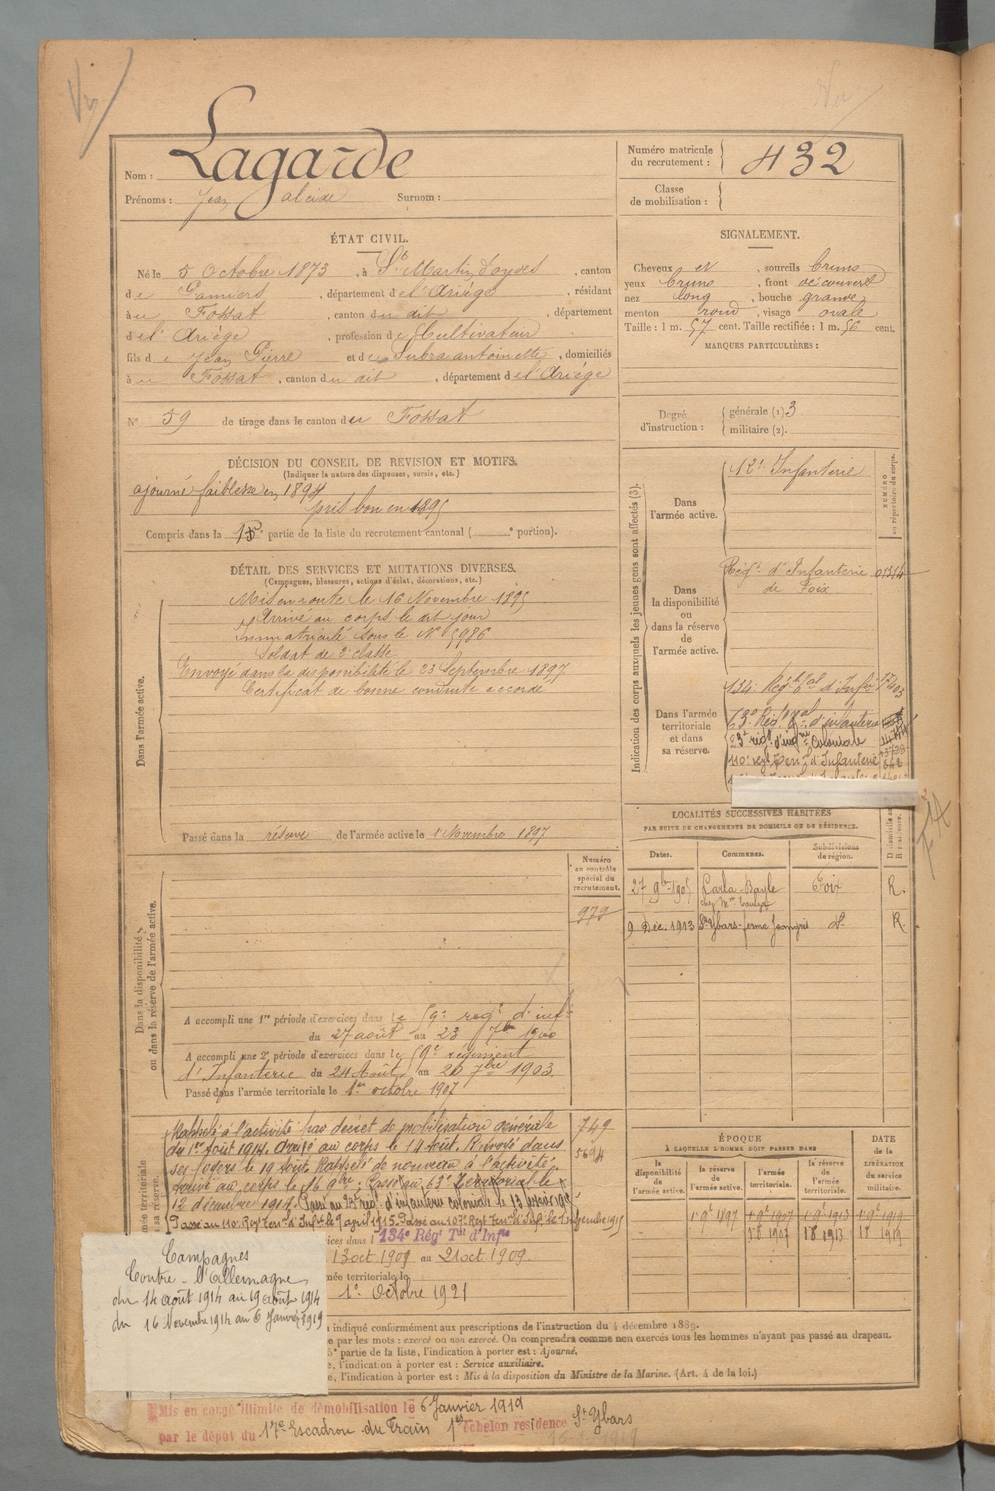 Nom : Lagarde
Prénoms : Jean alcide Surnom :
Numéro matricule du recrutement : 432
Classe de mobilisation :
ÉTAT CIVIL.
Né le 5 Octobre 1873, à St Martin d'oydes, canton
de Pamiers, département de l'Ariège, résidant
à u Fossat, canton du dit, département
de l'Ariège, profession de Cultivateur
fils de Jean Pierre et de Subra antoinette, domiciliés
à u Fossat, canton du dit, département de l'Ariège
N° 59 de tirage dans le canton du Fossat
SIGNALEMENT.
Cheveux et, sourcils bruns
yeux bruns, front découvert
nez long, bouche grande
menton rond, visage ovale
Taille : 1 m. 57 cent. Taille rectifiée : 1 m. 56 cent.
MARQUES PARTICULIÈRES :
Degré d'instruction : générale (1) 3
militaire (2).
DÉCISION DU CONSEIL DE REVISION ET MOTIFS.
(Indiquer la nature des dispenses, sursis, etc.)
ajourné faiblesse en 1894
pris bon en 1895
Compris dans la 1re partie de la liste du recrutement cantonal ( e portion).
DÉTAIL DES SERVICES ET MUTATIONS DIVERSES.
(Campagnes, blessures, actions d'éclat, décorations, etc.)
Dans l'armée active.
Mis en route le 16 Novembre 1895
Arrivé au corps le dit jour
Immatriculé sous le N° 5986
Soldat de 2e classe
Envoyé dans la disponibilité le 23 Septembre 1897
Certificat de bonne conduite accordé
Passé dans la réserve de l'armée active le 1 Novembre 1897
Indication des corps auxquels les jeunes gens sont affectés (3).
NUMÉRO au répertoire du corps.
Dans l'armée active.
12e Infanterie
Dans la disponibilité ou dans la réserve de l'armée active.
Régt d'Infanterie 01354
de Foix
Dans l'armée territoriale et dans sa réserve.
134e Régt tal d'Infie
63e Régt tal d'infanterie
23e régt d'infrie Coloniale
110e regt terr d'Infanterie
LOCALITÉS SUCCESSIVES HABITÉES
PAR SUITE DE CHANGEMENTS DE DOMICILE OU DE RÉSIDENCE.
Dates. Communes. Subdivisions de région.
27 9bre 1905 Carla Bayle Foix R.
9 Déc. 1913 St Ybars - ferme do R.
Dans la disponibilité ou dans la réserve de l'armée active.
Numéro au contrôle spécial du recrutement.
979
A accompli une 1re période d'exercices dans le 59e régt d'inf
du 27 août au 23 7bre 1900
A accompli une 2e période d'exercices dans le 59e régiment
d'Infanterie du 24 Août au 20 7bre 1903.
Passé dans l'armée territoriale le 1er octobre 1907
Rappelé à l'activité par décret de mobilisation générale
du 1er Août 1914. Arrivé au corps le 14 Août. Renvoyé dans
ses foyers le 19 Août. Rappelé de nouveau à l'activité.
Arrivé au corps le 16 9bre. Passé au 63e Territorial le
12 décembre 1914. Passé au 23e régt d'infanterie coloniale le 13
Passé au 110e Regt Terr d'Infie le 9 avril 1915. Passé au 107e Regt Terr d'Inf. le
749
5694
134e Régt Tal d'Infie
13 oct 1909 au 21 oct 1909.
mée territoriale le
1er Octobre 1921
ÉPOQUE
À LAQUELLE L'HOMME DOIT PASSER DANS
la disponibilité de l'armée active. la réserve de l'armée active. l'armée territoriale. la réserve de l'armée territoriale.
DATE DE LA LIBÉRATION DU SERVICE MILITAIRE.
1 9bre 1897 1 9bre 1907 1 9bre 1913 1 9bre 1919
1 8 1907 1 8 1913 1 8 1919
Campagnes
Contre - l'Allemagne
du 14 août 1914 au 19 août 1914
du 16 Novembre 1914 au 6 Janvier 1919
indiqué conformément aux prescriptions de l'instruction du 4 décembre 1889.
e par les mots : exercé ou non exercé. On comprendra comme non exercés tous les hommes n'ayant pas passé au drapeau.
partie de la liste, l'indication à porter est : Ajourné.
e, l'indication à porter est : Service auxiliaire.
e, l'indication à porter est : Mis à la disposition du Ministre de la Marine. (Art. 4 de la loi.)
Mis en congé illimité de démobilisation le 6 Janvier 1919
par le dépôt du 17e Escadron du Train 1er échelon residence St Ybars